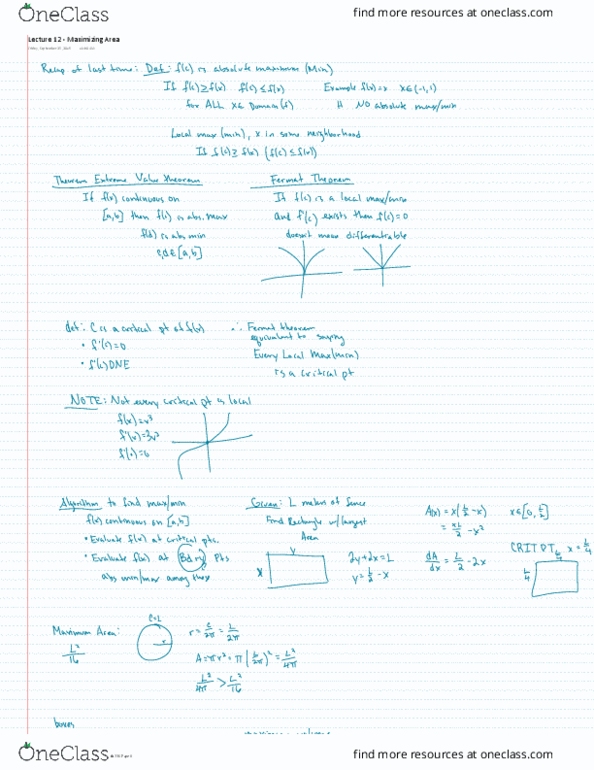 OneClass find more resources at oneclass.com
Lecture 12 - Maximizing Area
Recap of last time: Def: f(c) is absolute maximum (Min)
If f(c)≥f(x) f(c)≤f(x) Example f(x)=x x∈(-1,1)
for ALL x∈ Domain(f) NO absolute max/min
Local max (min), x in some neighborhood
If f(c)≥ f(x) (f(c)≤f(x))
Theorem Extreme Value Theorem
If f(x) continuous on
[a,b] then f(c) is abs. max
f(d) is abs min
c,d∈[a,b]
Fermat Theorem
If f(c) is a local max/min
and f'(c) exists then f'(c)=0
doesn't mean differentiable
def: C is a critical pt of f(x)
• f'(c)=0
• f'(c) DNE
∴ Fermat theorem
equivalent to saying
Every Local Max(min)
is a critical pt
NOTE: Not every critical pt is local
f(x)=x³
f'(x)=3x²
f'(0)=0
Algorithm to find max/min
f(x) continuous on [a,b]
• Evaluate f(x) at critical pts.
• Evaluate f(x) at Bdry Pts
abs min/max among these
Given: L meters of fence
Find Rectangle w/largest
Area
y
x
2y+2x=L
y=L/2-x
A(x)=x(L/2-x)
=xL/2-x²
dA/dx=L/2-2x
x∈[0,L/2]
CRIT PT x=L/4
L/4
L/4
Maximum Area:
L²/16
C=L
r
r=C/2π=L/2π
A=πr²=π(L/2π)²=L²/4π
L²/4π>L²/16
boxes
OneClass find more resources at oneclass.com